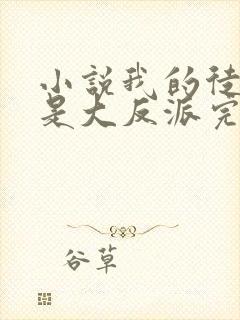 小説我的徒
是大反派完
谷草